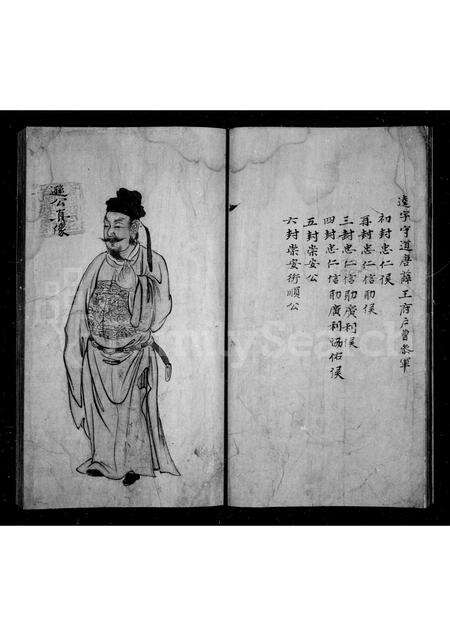 達字守道唐薛王府戶曹參軍
初封忠仁侯
再封忠仁信助侯
三封忠仁信助廣利侯
四封忠仁信助廣利涵佑侯
五封崇安公
六封崇安衍順公
公肖像